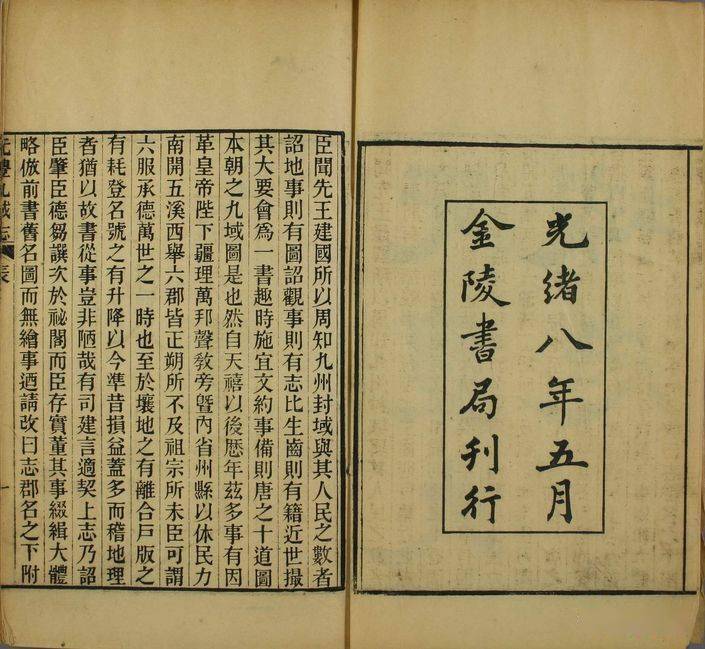 光緒八年五月
金陵書局刊行
臣聞先王建國所以周知九州封域與其人民之數者
詔地事則有圖詔觀事則有志比生齒則有籍近世撮
其大要會爲一書趣時施宜文約事備則唐之十道圖
本朝之九域圖是也然自天禧以後歴年茲多事有因
革皇帝陛下疆理萬邦聲敎旁曁內省州縣以休民力
南開五溪西舉六郡皆正朔所不及祖宗所未臣可謂
六服承德萬世之一時也至於壤地之有離合戶版之
有耗登名號之有升降以今準昔損益蓋多而稽地理
者猶以故書從事豈非陋哉有司建言適契上志乃詔
臣肇臣德芻譔次於祕閣而臣存實董其事綴緝大體
略倣前書舊名圖而無繪事迺請改曰志郡名之下附
元豐九域志
表
一